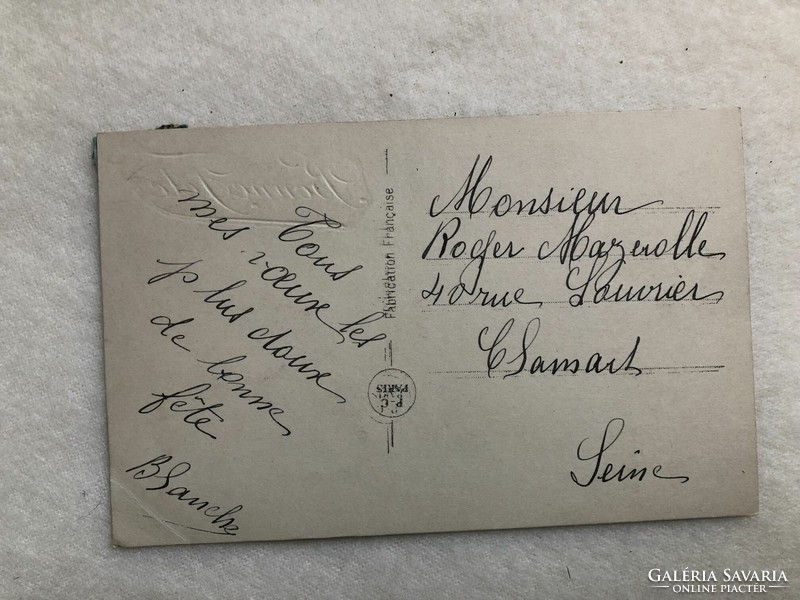 Bonne Fête
Tous
mes vœux les
plus doux
de bonne
fête
Blanche
Fabrication Française
P-C
PARIS
Monsieur
Roger Mazerolle
40 rue Louvrier
Clamart
Seine
GALÉRIA SAVARIA
ONLINE PIACTÉR